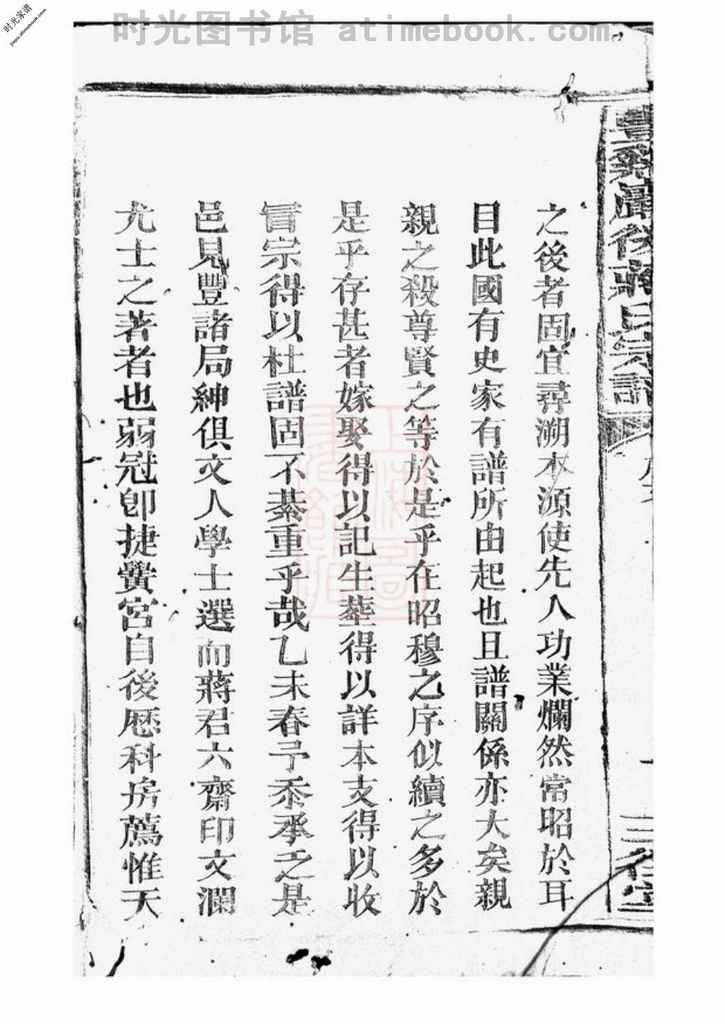 时光图书馆 atimebook.com
时光家谱
豐谿嚴後蔣氏宗譜
之後者固宜尋溯本源使先人功業爛然常昭於耳
目此國有史家有譜所由起也且譜關係亦大矣親
親之殺尊賢之等於是乎在昭穆之序似續之多於
是乎存甚者嫁娶得以記生塟得以詳本支得以收
冒宗得以杜譜固不綦重乎哉乙未春予忝承乏是
邑見豐諸局紳俱文人學士選而蔣君六齋印文瀾
尤士之著者也弱冠卽捷黌宮自後歷科房薦惟天